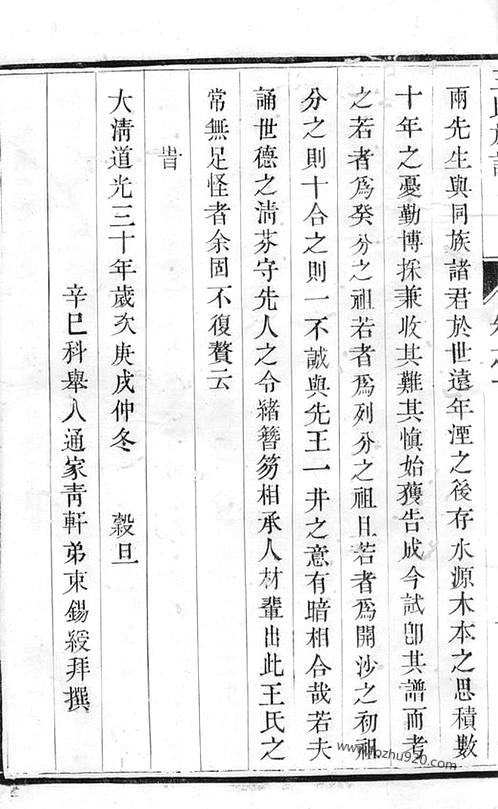 王氏族譜
兩先生與同族諸君於世遠年湮之後存水源木本之思積數
十年之憂勤博採兼收其難其慎始獲告成今試卽其譜而考
之若者爲癸分之祖若者爲列分之祖且若者爲開沙之初祖
分之則十合之則一不誠與先王一井之意有暗相合哉若夫
誦世德之淸芬守先人之令緒簪笏相承人材輩出此王氏之
常無足怪者余固不復贅云
旹
大淸道光三十年歲次庚戌仲冬 穀旦
辛巳科舉人通家靑軒弟束錫綬拜撰
www.pozhu920.com